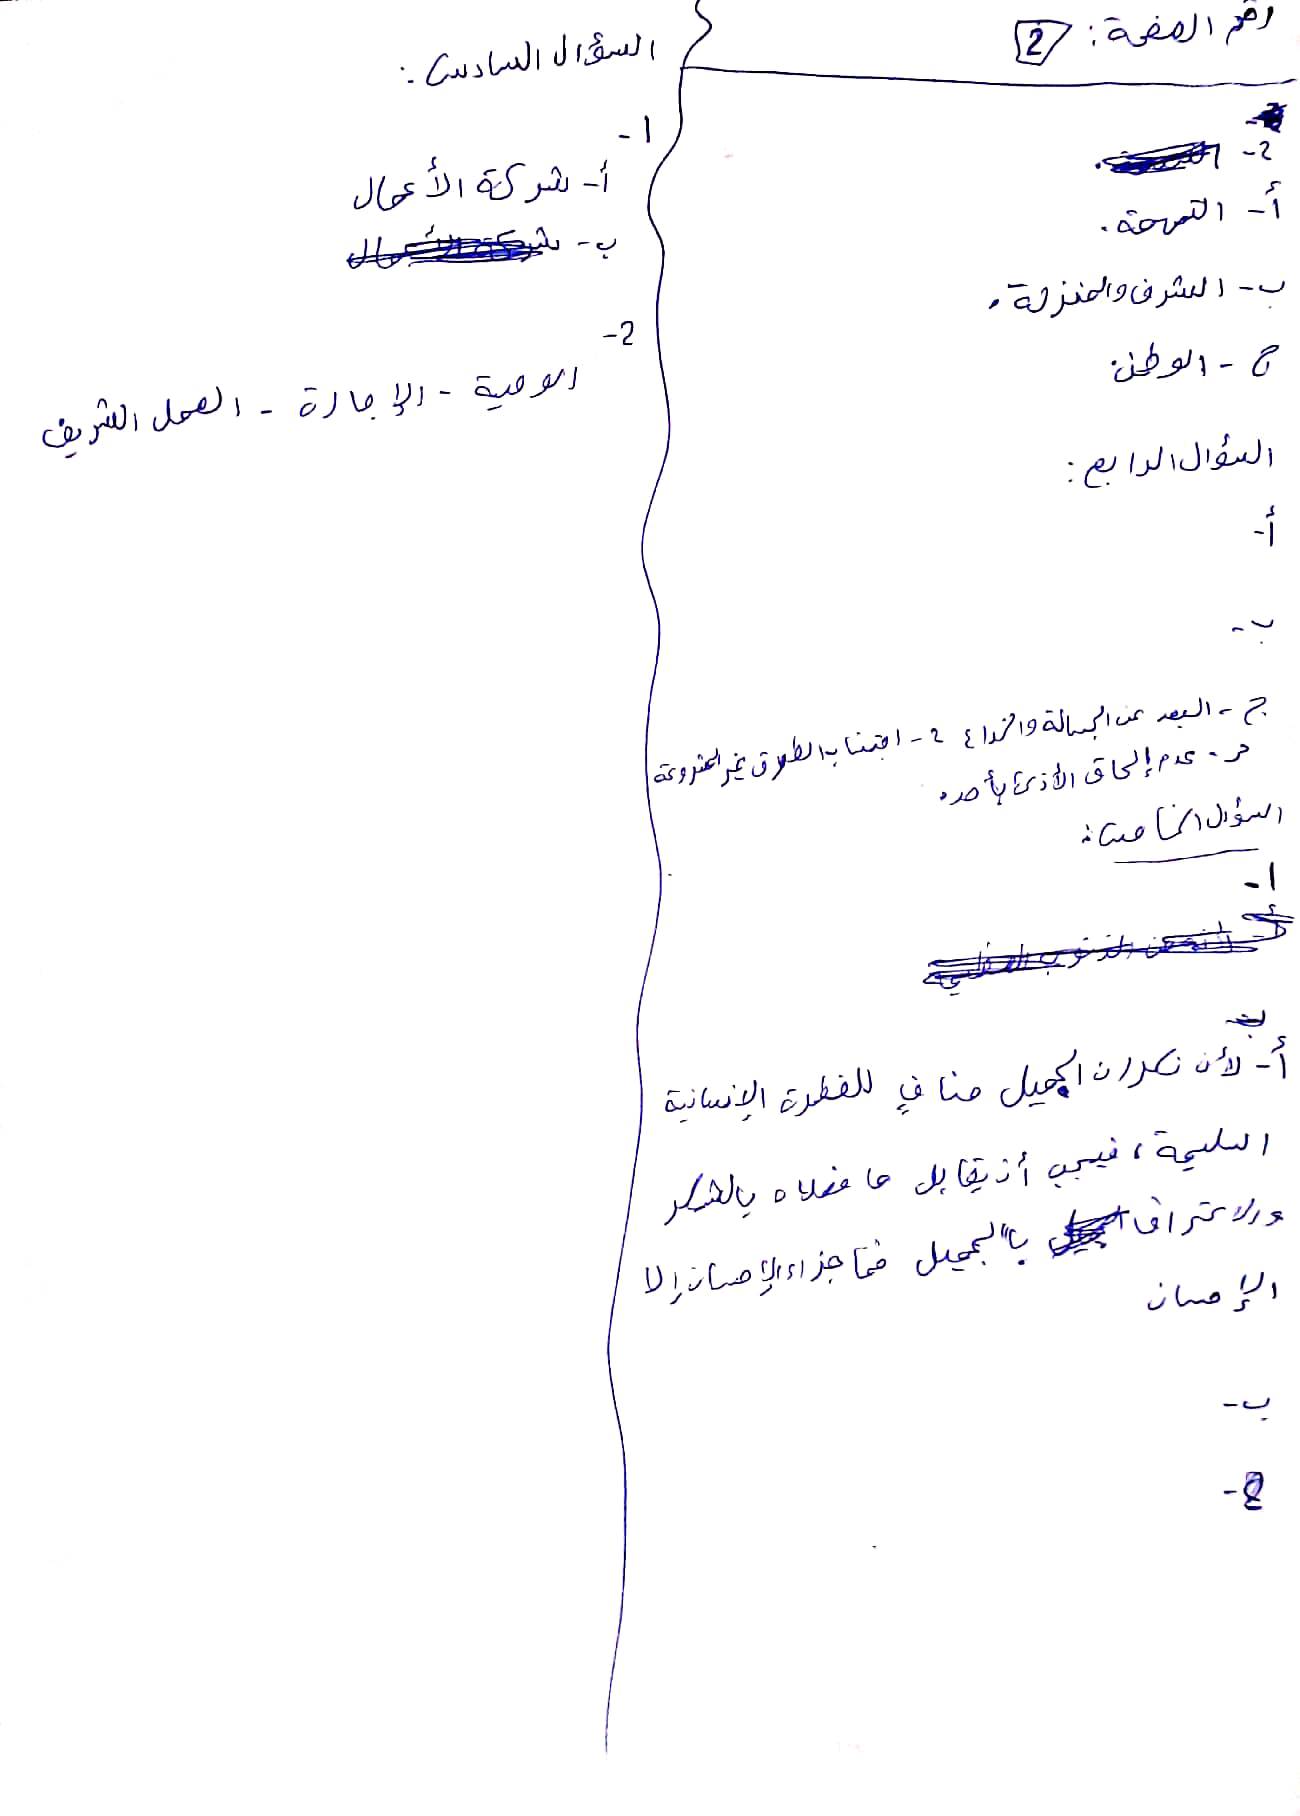 رقم الصفحة: 2
2-
أ-
ب- الشرف والمنزلة.
ج- الوطن
السؤال الرابع:
أ-
ب-
ج- البعد عن الجهالة والخداع 2- اجتناب الطرق غير المشروعة
3- عدم إلحاق الأذى بأحد.
السؤال الخامس:
1-
ب
أ- لأن نكران الجميل منافي للفطرة الإنسانية
السليمة، فيجب أن يقابل ما فعلاه بالشكر
والاعتراف بالجميل فما جزاء الإحسان إلا
الإحسان
ب-
2-
السؤال السادس:
1-
أ- شركة الأعمال
ب- شركة الأعمال
2-
الوصية - الإجارة - العمل الشريف